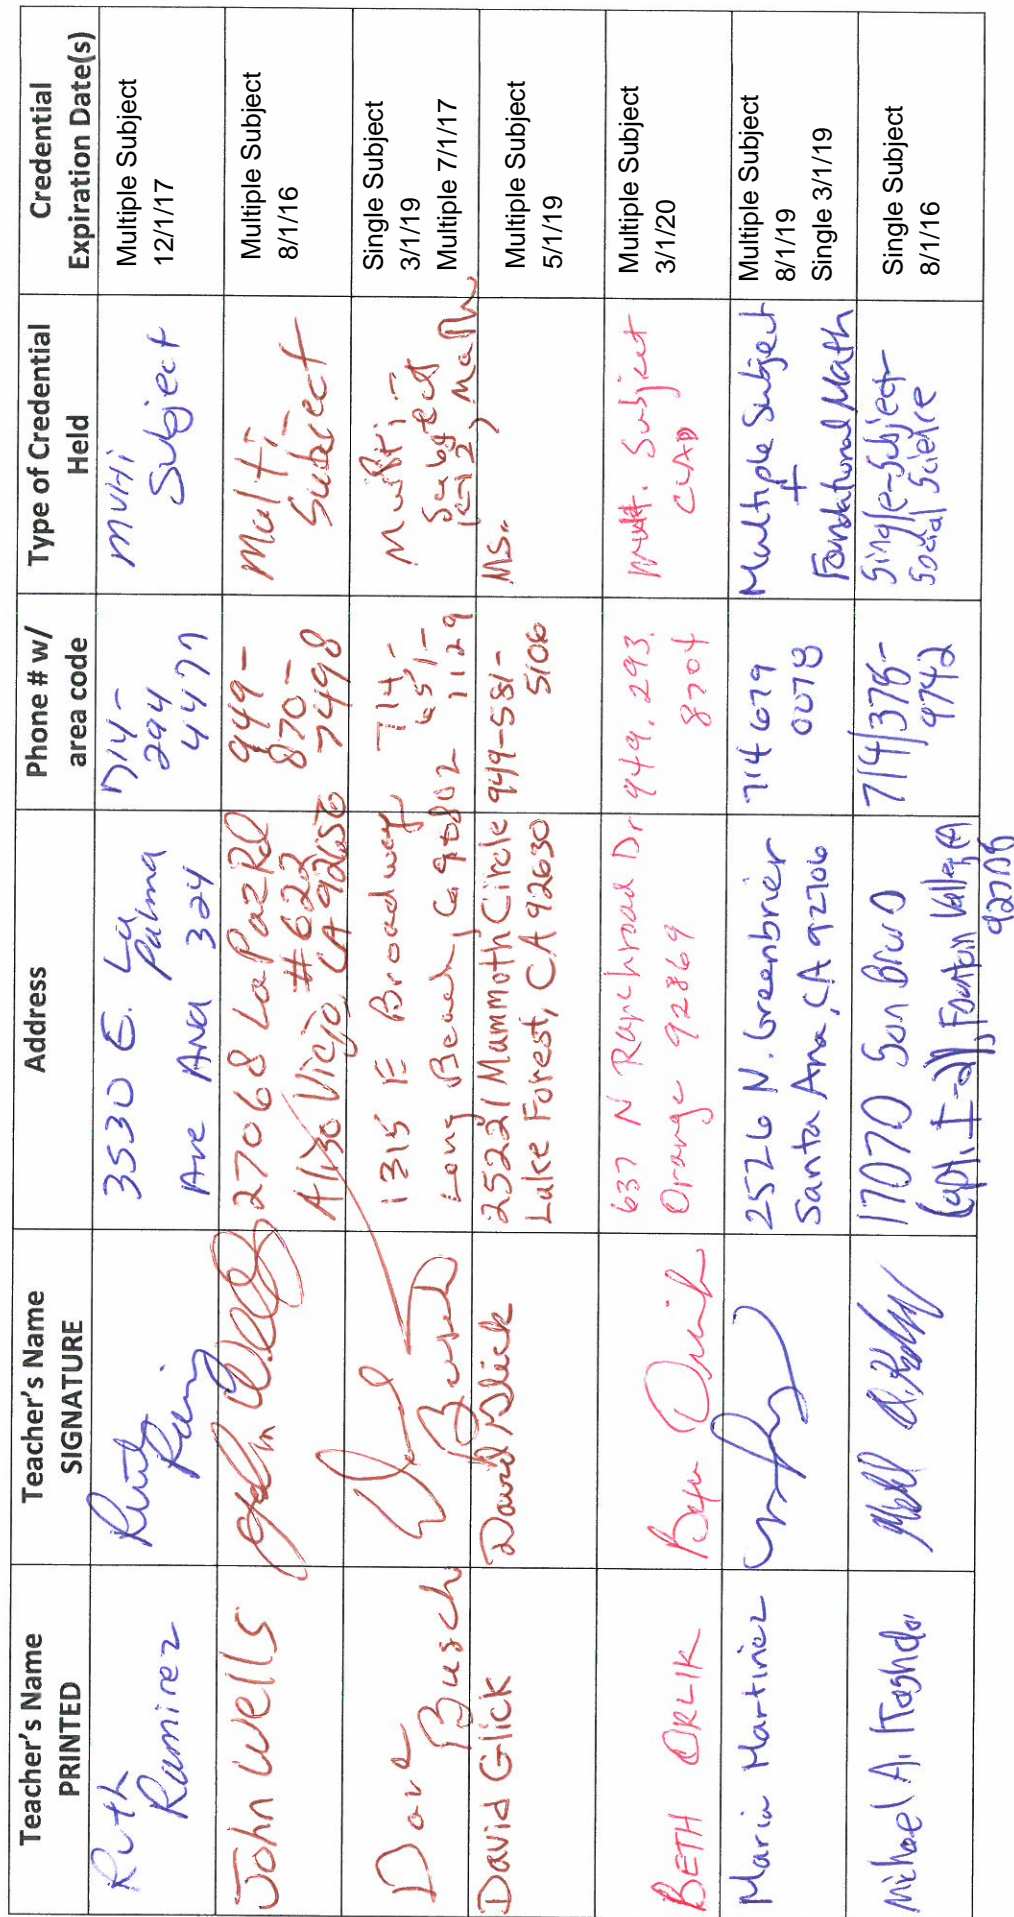 Teacher's Name
PRINTED
Teacher's Name
SIGNATURE
Address
Phone # w/
area code
Type of Credential
Held
Credential
Expiration Date(s)
Ruth
Ramirez
3530 E. La
Palma
Ave Ana 324
714-
294
4477
Multi
Subject
Multiple Subject
12/1/17
John Wells
John Wells
27068 La Paz Rd
#622
Aliso Viejo, CA 92656
949-
870-
7498
Multi-
Subject
Multiple Subject
8/1/16
Dave
Busch
1315 E Broadway
Long Beach, Ca 90802
714-
651-
1129
Multi-
Subject
Math
Single Subject
3/1/19
Multiple 7/1/17
David Glick
David Glick
25221 Mammoth Circle
Lake Forest, CA 92630
949-581-
5106
MS.
Multiple Subject
5/1/19
BETH ORLIK
Beth Orlik
637 N Ranchroad Dr
Orange 92869
949.293.
8704
Mult. Subject
CLAD
Multiple Subject
3/1/20
Maria Martinez
2526 N. Greenbrier
Santa Ana, CA 92706
714 679
0078
Multiple Subject
+
Foundational Math
Multiple Subject
8/1/19
Single 3/1/19
Michael A.
17070 San Bruno
Fountain Valley CA
92708
714/376-
9742
Single-Subject
Social Science
Single Subject
8/1/16